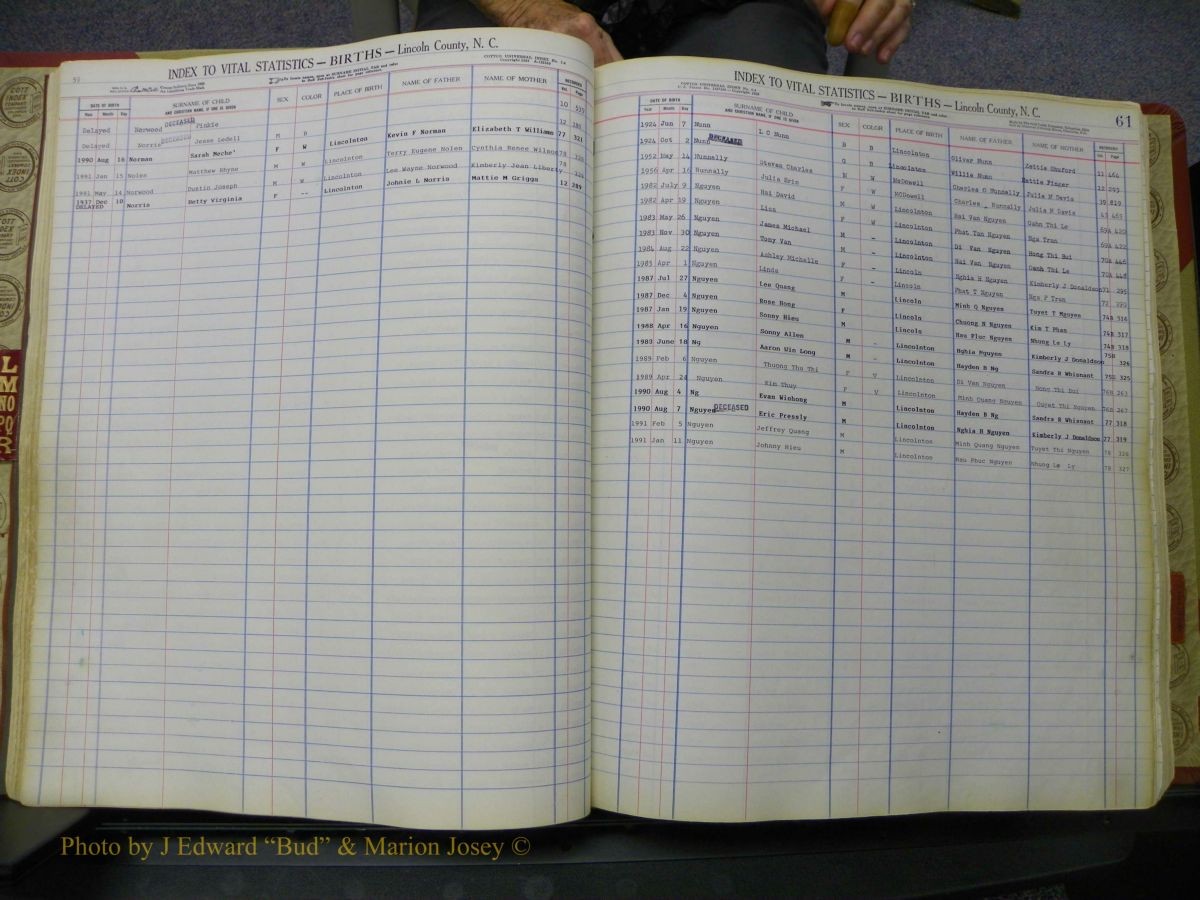 59
INDEX TO VITAL STATISTICS — BIRTHS — Lincoln County, N. C.
DATE OF BIRTH
Year Month Day
SURNAME OF CHILD
AND CHRISTIAN NAME, IF ONE IS GIVEN
SEX
COLOR
PLACE OF BIRTH
NAME OF FATHER
NAME OF MOTHER
RECORDED
Vol. Page
Delayed Norwood DECEASED Pinkie 10 535
Delayed Norris DECEASED Jesse Ledell M B 12
1990 Aug 16 Norman Sarah Meche' F W Lincolnton Kevin F Norman Elizabeth T Williams 77 321
1991 Jan 15 Noles Matthew Rhyne M W Lincolnton Terry Eugene Nolen Cynthia Renee Wilson 78
1991 May 14 Norwood Dustin Joseph M W Lincolnton Lee Wayne Norwood Kimberly Jean Liberty 78
1937 Dec 10 DELAYED Norris Betty Virginia F -- Lincolnton Johnie L Norris Mattie M Griggs 12 289
INDEX TO VITAL STATISTICS — BIRTHS — Lincoln County, N. C.
61
DATE OF BIRTH
Year Month Day
SURNAME OF CHILD
AND CHRISTIAN NAME, IF ONE IS GIVEN
SEX
COLOR
PLACE OF BIRTH
NAME OF FATHER
NAME OF MOTHER
RECORDED
Vol. Page
1924 Jun 7 Nunn L C Nunn B B Lincolnton Oliver Nunn Zettie Shuford 11 464
1924 Oct 2 Nunn DECEASED G B Lincolnton Willie Nunn Hattie Finger 12
1952 May 14 Nunnally Steven Charles B W McDowell Charles G Nunnally Julia M Davis 39 819
1956 Apr 16 Nunnally Julia Erin G W McDowell Charles Nunnally Julia M Davis 43 465
1982 July 9 Nguyen Hai David M W Lincolnton Hai Van Nguyen Oahn Thi Le 69A 420
1982 Apr 19 Nguyen Lisa F W Lincolnton Phat Tan Nguyen Nga Tran 69A 422
1983 May 26 Nguyen James Michael M - Lincolnton Di Van Nguyen Hong Thi Bui 70A 446
1983 Nov 30 Nguyen Tony Van M - Lincolnton Hai Van Nguyen Oanh Thi Le 70A 448
1984 Aug 22 Nguyen Ashley Michelle F - Lincoln Nghia H Nguyen Kimberly J Donaldson 71 295
1985 Apr 1 Nguyen Linda F - Lincoln Phat T Nguyen Nga P Tran 72
1987 Jul 27 Nguyen Lee Quang M Lincoln Minh Q Nguyen Tuyet T Nguyen 74B 316
1987 Dec 4 Nguyen Rose Hong F Lincoln Chuong N Nguyen Kim T Phan 74B 317
1987 Jan 19 Nguyen Sonny Hieu M Lincoln Hau Phuc Nguyen Nhung Le Ly 74B 318
1988 Apr 16 Nguyen Sonny Allen M - Lincolnton Nghia Nguyen Kimberly J Donaldson 75B 326
1983 June 18 Ng Aaron Win Long M - Lincolnton Hayden B Ng Sandra R Whisnant 75B 325
1989 Feb 6 Nguyen Thuong Thu Thi F V Lincolnton Di Van Nguyen Hong Thi Bui 76B 263
1989 Apr 24 Nguyen Kim Thuy F V Lincolnton Minh Quang Nguyen Tuyet Thi Nguyen 76B 267
1990 Aug 4 Ng Evan Winhong M Lincolnton Hayden B Ng Sandra R Whisnant 77 318
1990 Aug 7 Nguyen DECEASED Eric Pressly M Lincolnton Nghia H Nguyen Kimberly J Donaldson 77 319
1991 Feb 5 Nguyen Jeffrey Quang M Lincolnton Minh Quang Nguyen Tuyet Thi Nguyen 78 326
1991 Jan 11 Nguyen Johnny Hieu M Lincolnton Hau Phuc Nguyen Nhung Le Ly 78 327
L
M
NO
PQ
R
Photo by J Edward “Bud” & Marion Josey ©